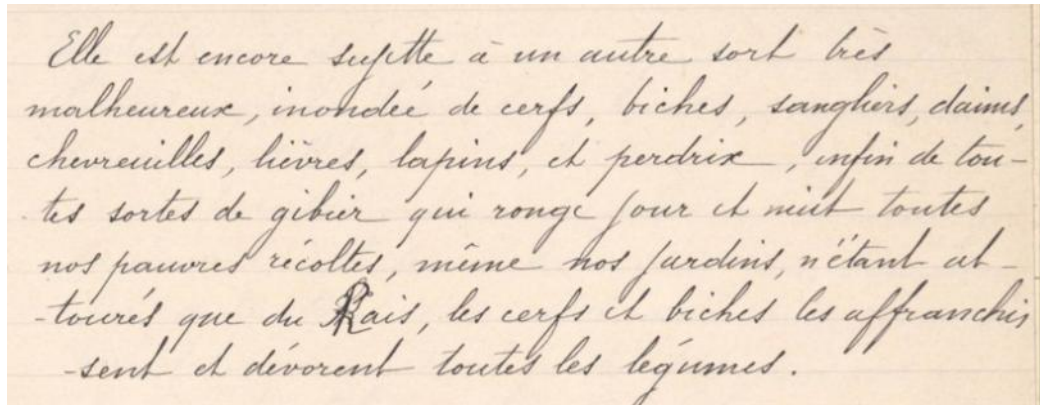 Elle est encore sujette à un autre sort très
malheureux, inondée de cerfs, biches, sangliers, daims,
chevreuilles, lièvres, lapins, et perdrix, enfin de tou-
tes sortes de gibier qui ronge jour et nuit toutes
nos pauvres récoltes, même nos jardins, n'étant at-
-tourés que du Rais, les cerfs et biches les affranchis
-sent et dévorent toutes les légumes.